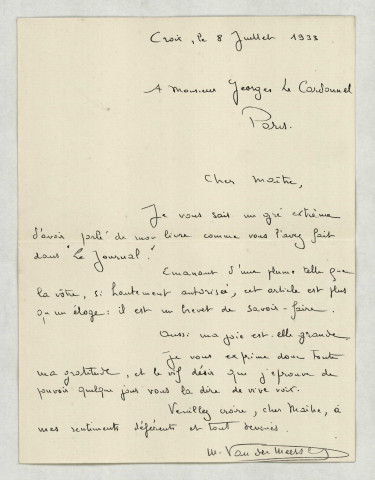 Croix, le 8 Juillet 1933
A Monsieur Georges Le Cardonnel
Paris.
Cher Maître,
Je vous sais un gré extrême
d'avoir parlé de mon livre comme vous l'avez fait
dans "Le Journal".
Emanant d'une plume telle que
la vôtre, si hautement autorisée, cet article est plus
qu'un éloge : il est un brevet de savoir-faire.
Aussi ma joie est-elle grande.
Je vous exprime donc toute
ma gratitude, et le vif désir que j'éprouve de
pouvoir quelque jour vous la dire de vive voix.
Veuillez croire, cher Maître, à
mes sentiments déférents et tout dévoués.
M. Van der Meersch